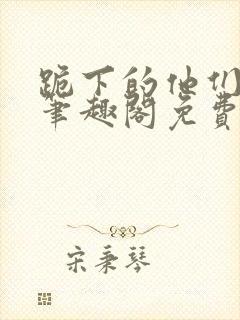 跪下的他们
笔趣阁免费
宋秉琴